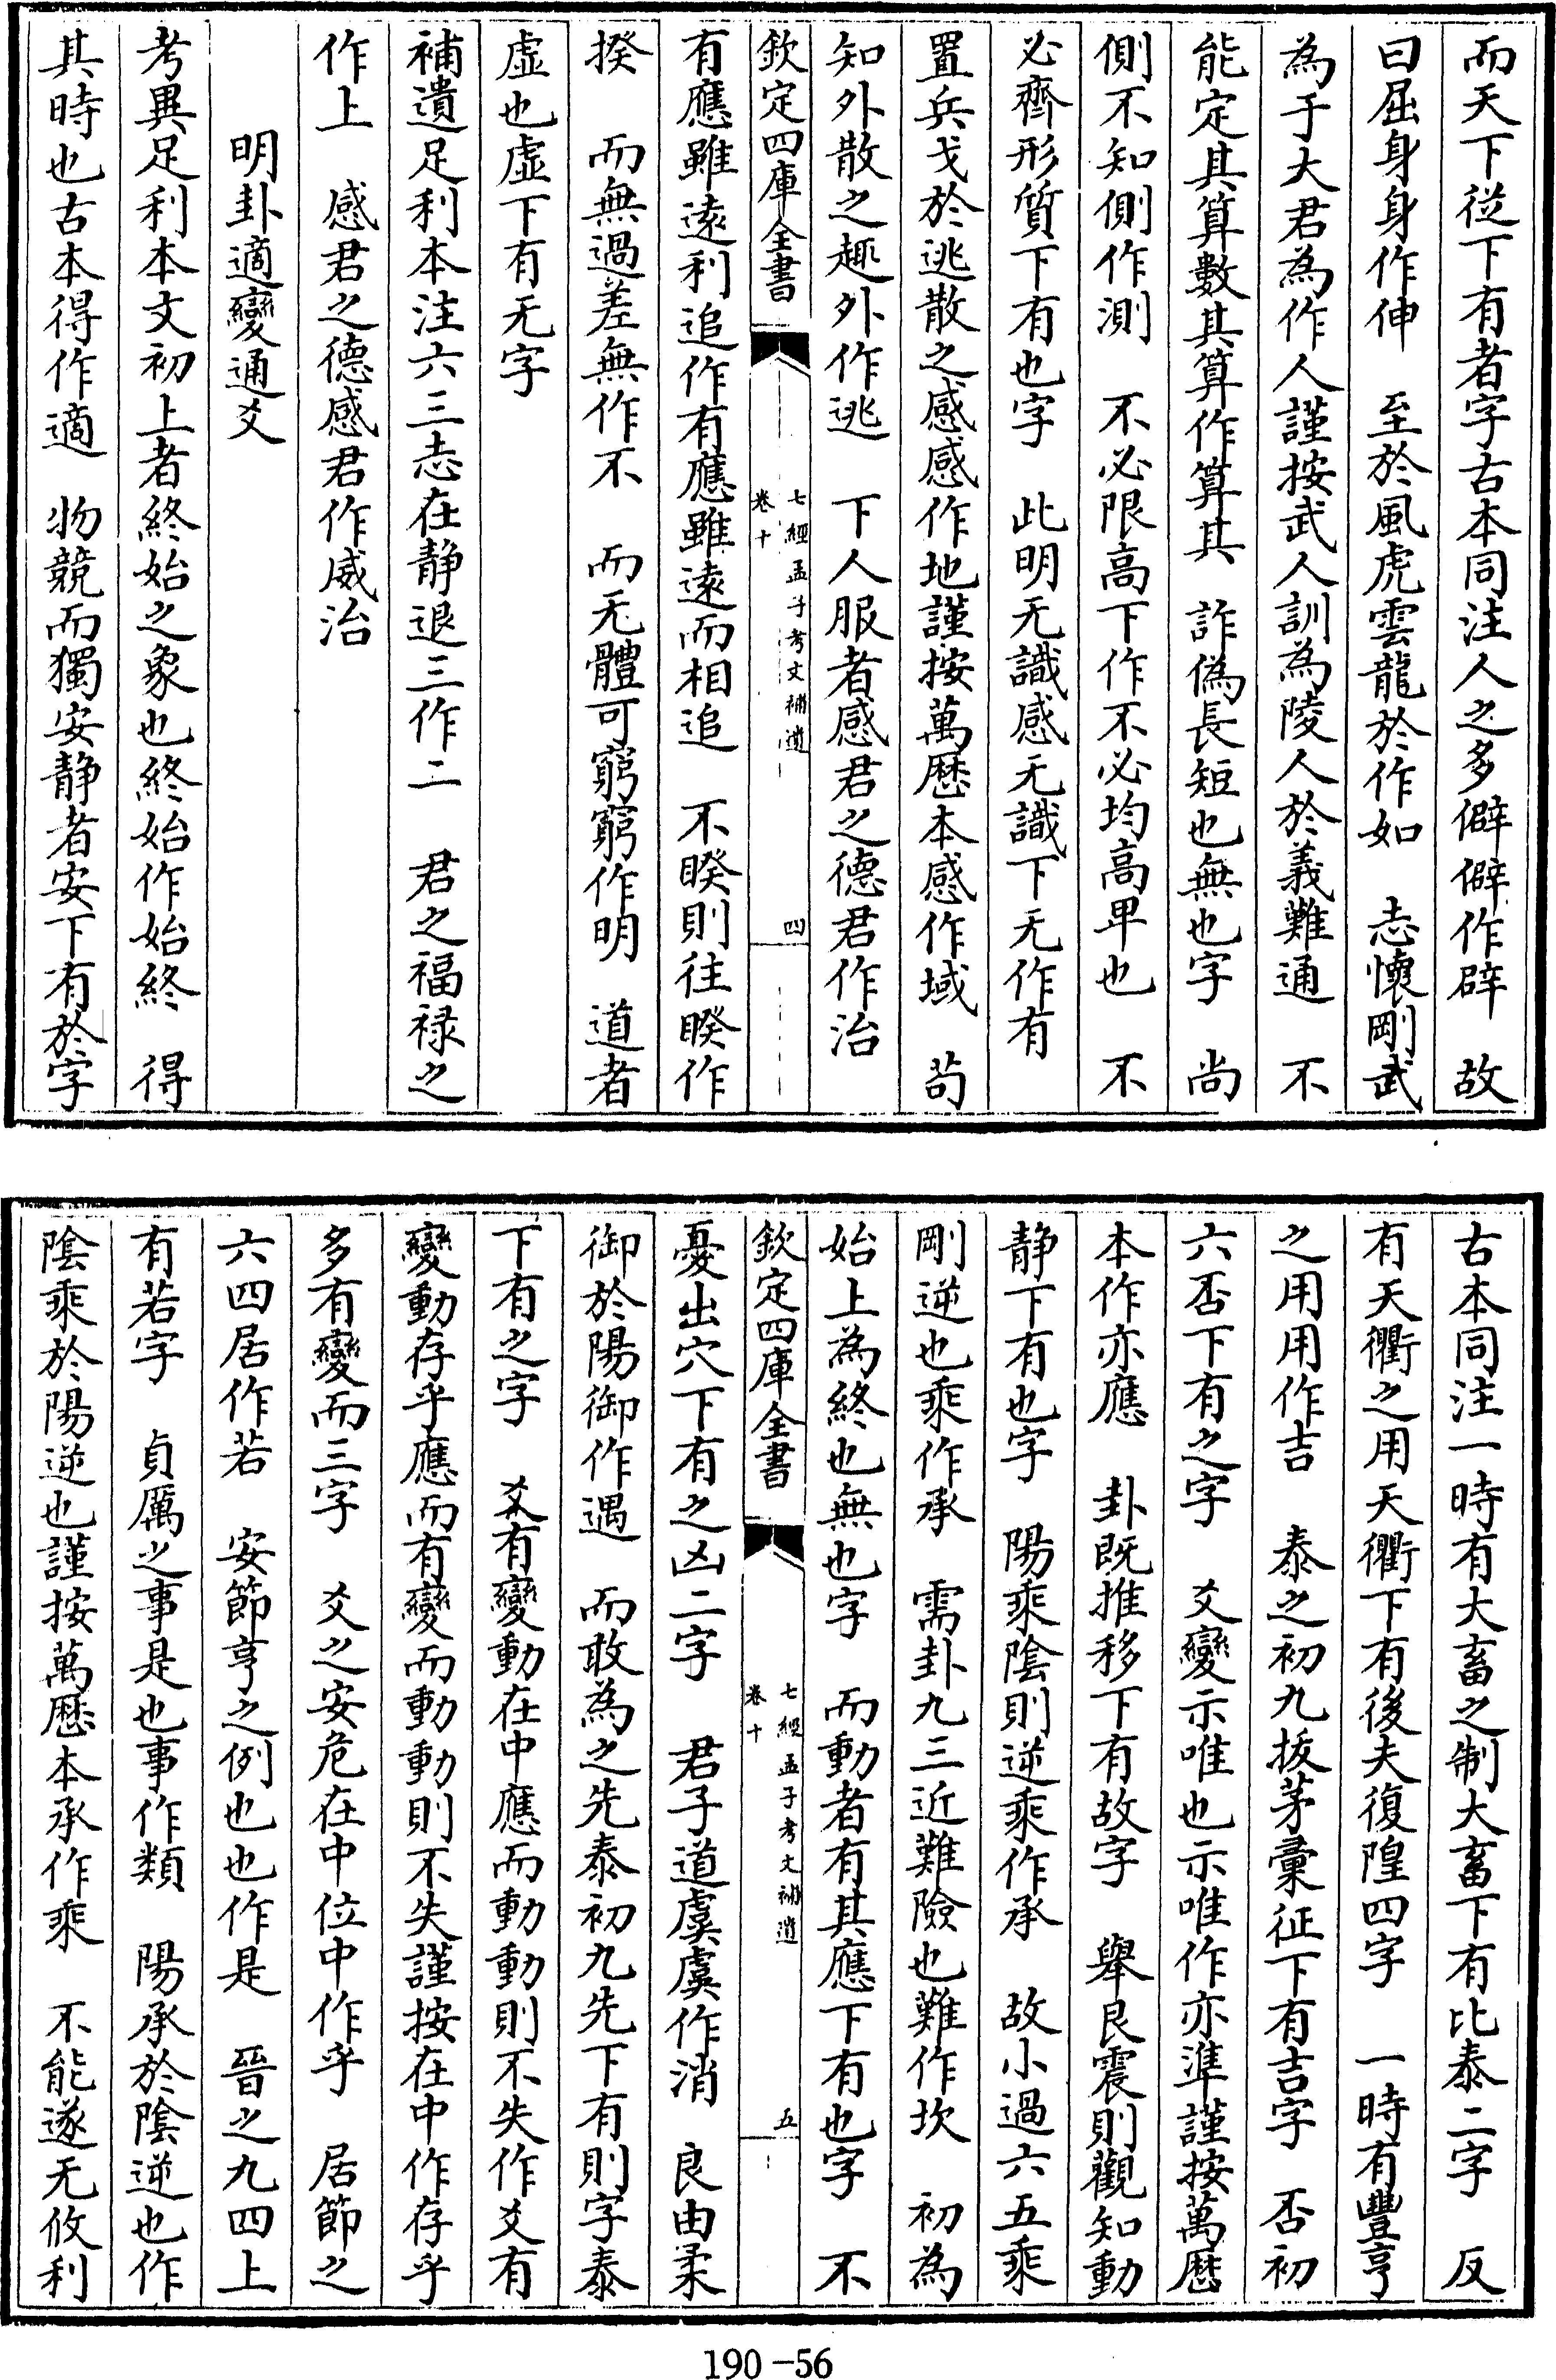 而天下從下有者字古本同注人之多僻僻作辟　故
曰屈身身作伸　至於風虎雲龍於作如　志懷剛武
為于大君為作人謹按武人訓為陵人於義難通　不
能定其算數其算作算其　詐偽長短也無也字　尚
側不知側作測　不必限高下作不必均高卑也　不
必齊形質下有也字　此明无識感无識下无作有
置兵戈於逃散之感感作地謹按萬歴本感作域　苟
知外散之趣外作逃　下人服者感君之德君作治
欽定四庫全書　七經孟子考文補遺　卷十　四
有應雖逺利追作有應雖逺而相追　不睽則往睽作
揆　而無過差無作不　而无體可窮窮作明　道者
虚也虚下有无字
補遺足利本注六三志在静退三作二　君之福禄之
作上　感君之德感君作威治
明卦適變通爻
考異足利本文初上者終始之象也終始作始終　得
其時也古本得作適　物競而獨安静者安下有於字
古本同注一時有大畜之制大畜下有比泰二字　反
有天衢之用天衢下有後夫復隍四字　一時有豐亨
之用用作吉　泰之初九拔茅彙征下有吉字　否初
六否下有之字　爻變示唯也示唯作亦準謹按萬歴
本作亦應　卦既推移下有故字　舉艮震則觀知動
静下有也字　陽乘陰則逆乘作承　故小過六五乘
剛逆也乘作承　需卦九三近難險也難作坎　初為
始上為終也無也字　而動者有其應下有也字　不
欽定四庫全書　七經孟子考文補遺　卷十　五
憂出穴下有之凶二字　君子道虞虞作消　良由柔
御於陽御作遇　而敢為之先泰初九先下有則字泰
下有之字　爻有變動在中應而動動則不失作爻有
變動存乎應而有變而動動則不失謹按在中作存乎
多有變而三字　爻之安危在中位中作乎　居節之
六四居作若　安節亨之例也也作是　晉之九四上
有若字　貞厲之事是也事作類　陽承於陰逆也作
陰乘於陽逆也謹按萬歴本承作乘　不能遂无攸利
190-56